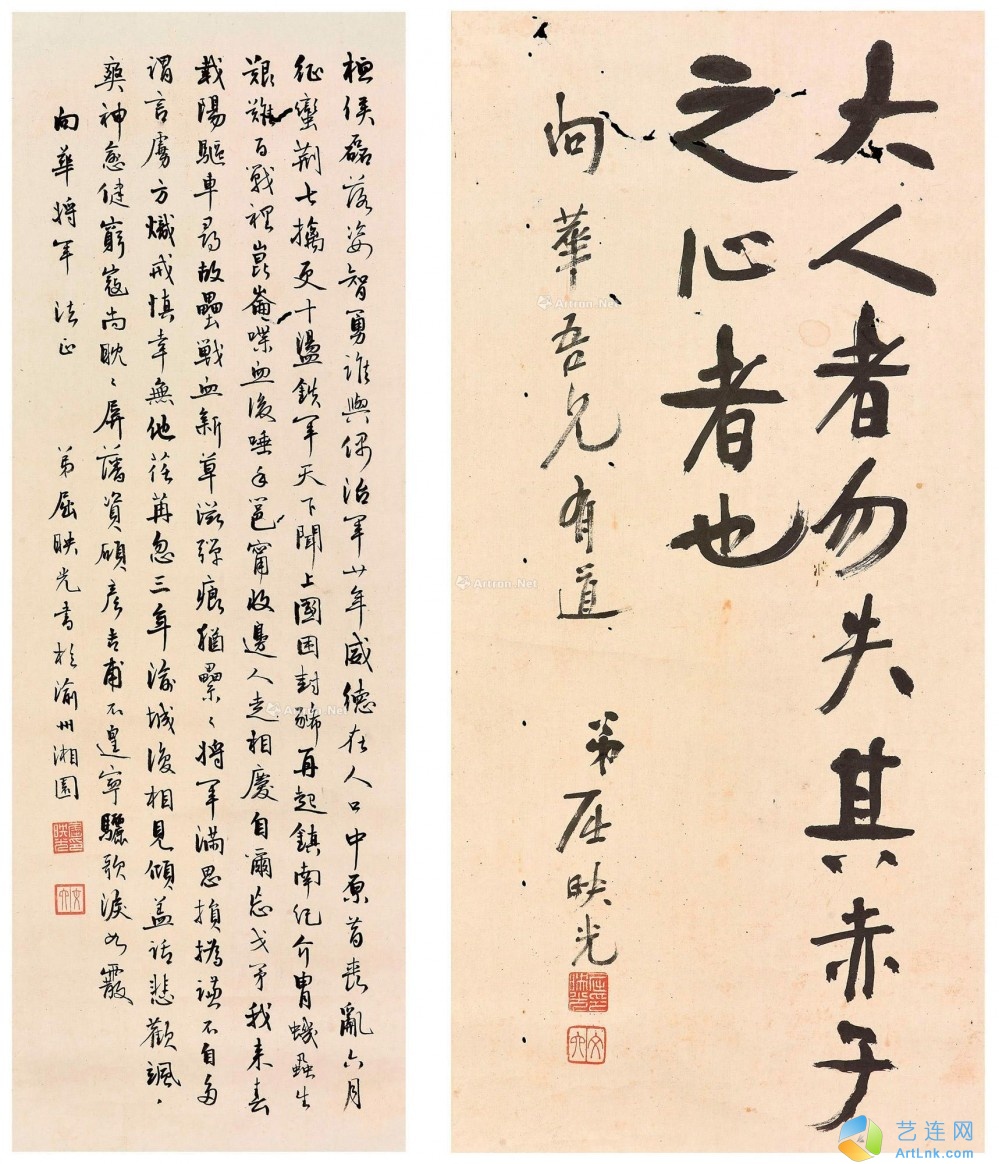 大人者勿失其赤子
之心者也
向華吾兄有道
弟屈映光
桓侯磊落姿智勇誰與偶治軍廿年威德在人口中原昔喪亂六月
征蠻荆七擒更十盪鉄軍天下聞上國困封豨再起鎮南伐介胄蟣蝨生
艱難百戰裡崑崙喋血後唾手邕甯收邊人走相慶自爾忘戈矛我来春
載陽驅車尋故壘戰血新草滋彈痕猶纍々將軍滿思損撝謙不自多
謂言虜方熾戒慎幸無他荏苒忽三年渝城復相見傾蓋話悲歡颯々
爽神愈健窮寇尚眈々屏藩資碩彥吉甫不遑寧驪歌淚如霰
向華將軍 法正 弟屈映光書於渝州湘園
屈映光
文六
Artron.Net
艺连网
ArtLnk.com